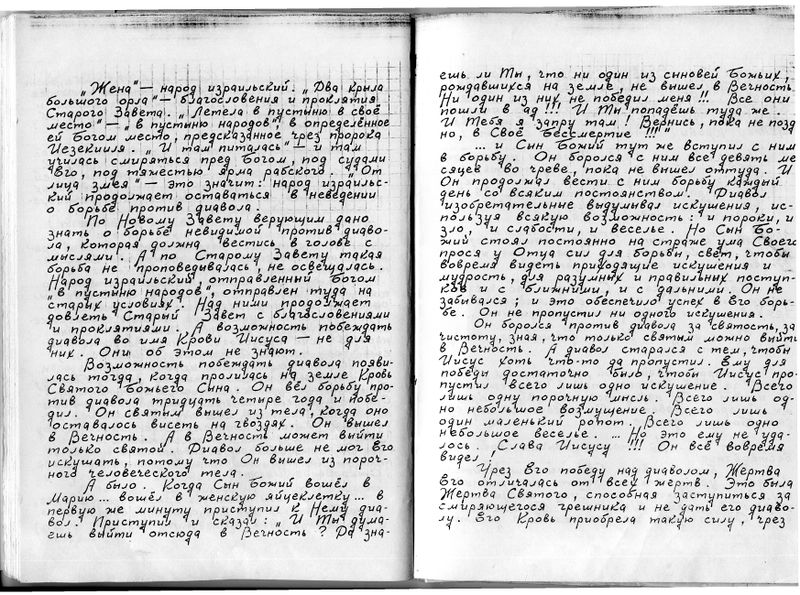 „Жена" — народ израильский. „Два крыла
большого орла" — благословения и проклятия
Старого Завета. „Летела в пустыню в своё
место" — „в пустыню народов", в определённое
ей Богом место, предсказанное чрез пророка
Иезекииля. „И там питалась" — и там
училась смиряться пред Богом, под судами
Его, под тяжестью ярма рабского. „От
лица змея" — это значит: народ израильс-
кий продолжает оставаться в неведении
о борьбе против диавола.
По Новому Завету верующим дано
знать о борьбе невидимой против диаво-
ла, которая должна вестись в голове с
мыслями. А по Старому Завету такая
борьба не проповедывалась, не освещалась.
Народ израильский отправленный Богом
„в пустыню народов", отправлен туда на
старых условиях. Над ними продолжает
довлеть Старый Завет с благословениями
и проклятиями. А возможность побеждать
диавола во имя Крови Иисуса — не для
них. Они об этом не знают.
Возможность побеждать диавола появи-
лась тогда, когда пролилась на земле Кровь
Святого Божьего Сына. Он вёл борьбу про-
тив диавола тридцать четыре года и побе-
дил. Он святым вышел из тела, когда оно
оставалось висеть на гвоздях. Он вышел
в Вечность. А в Вечность может выйти
только святой. Диавол больше не мог Его
искушать, потому что Он вышел из пороч-
ного человеческого тела.
А было. Когда Сын Божий вошёл в
Марию... вошёл в женскую яйцеклетку... в
первую же минуту приступил к Нему диа-
вол. Приступил и сказал: „И Ты дума-
ешь выйти отсюда в Вечность? Да зна-
ешь ли Ты, что ни один из сыновей Божьих,
рождавшихся на земле, не вышел в Вечность.
Ни один из них не победил меня!!! Все они
пошли в ад!!! И Ты попадёшь туда же.
И Тебя я запру там! Вернись, пока не позд-
но, в Своё Бессмертие!!!!"
... и Сын Божий тут же вступил с ним
в борьбу. Он боролся с ним все девять ме-
сяцев во чреве, пока не вышел оттуда. И
Он продолжал вести с ним борьбу каждый
день со всяким постоянством. Диавол
изобретательные выдумывал искушения, ис-
пользуя всякую возможность: и пороки, и
зло, и слабости, и веселье. Но Сын Бо-
жий стоял постоянно на страже ума Своего
прося у Отца сил для борьбы, свет, чтобы
вовремя видеть приходящие искушения и
мудрость, для разумных и правильных поступ-
ков и с ближними, и с дальними. Он не
забывался; и это обеспечило успех в Его борь-
бе. Он не пропустил ни одного искушения.
Он боролся против диавола за святость, за
чистоту, зная, что только святым можно выйти
в Вечность. А диавол старался с тем, чтобы
Иисус хоть что-то да пропустил. Ему для
победы достаточно было, чтобы Иисус про-
пустил всего лишь одно искушение. Всего
лишь одну порочную мысль. Всего лишь од-
но небольшое возмущение. Всего лишь
один маленький ропот. Всего лишь одно
небольшое веселье. ... Но это ему не уда-
лось. Слава Иисусу!!!! Он всё вовремя
видел.
Чрез Его победу над диаволом, Жертва
Его отличалась от всех жертв. Это была
Жертва Святого, способная заступиться за
смиряющегося грешника и не дать его диаво-
лу. Его Кровь приобрела такую силу, чрез